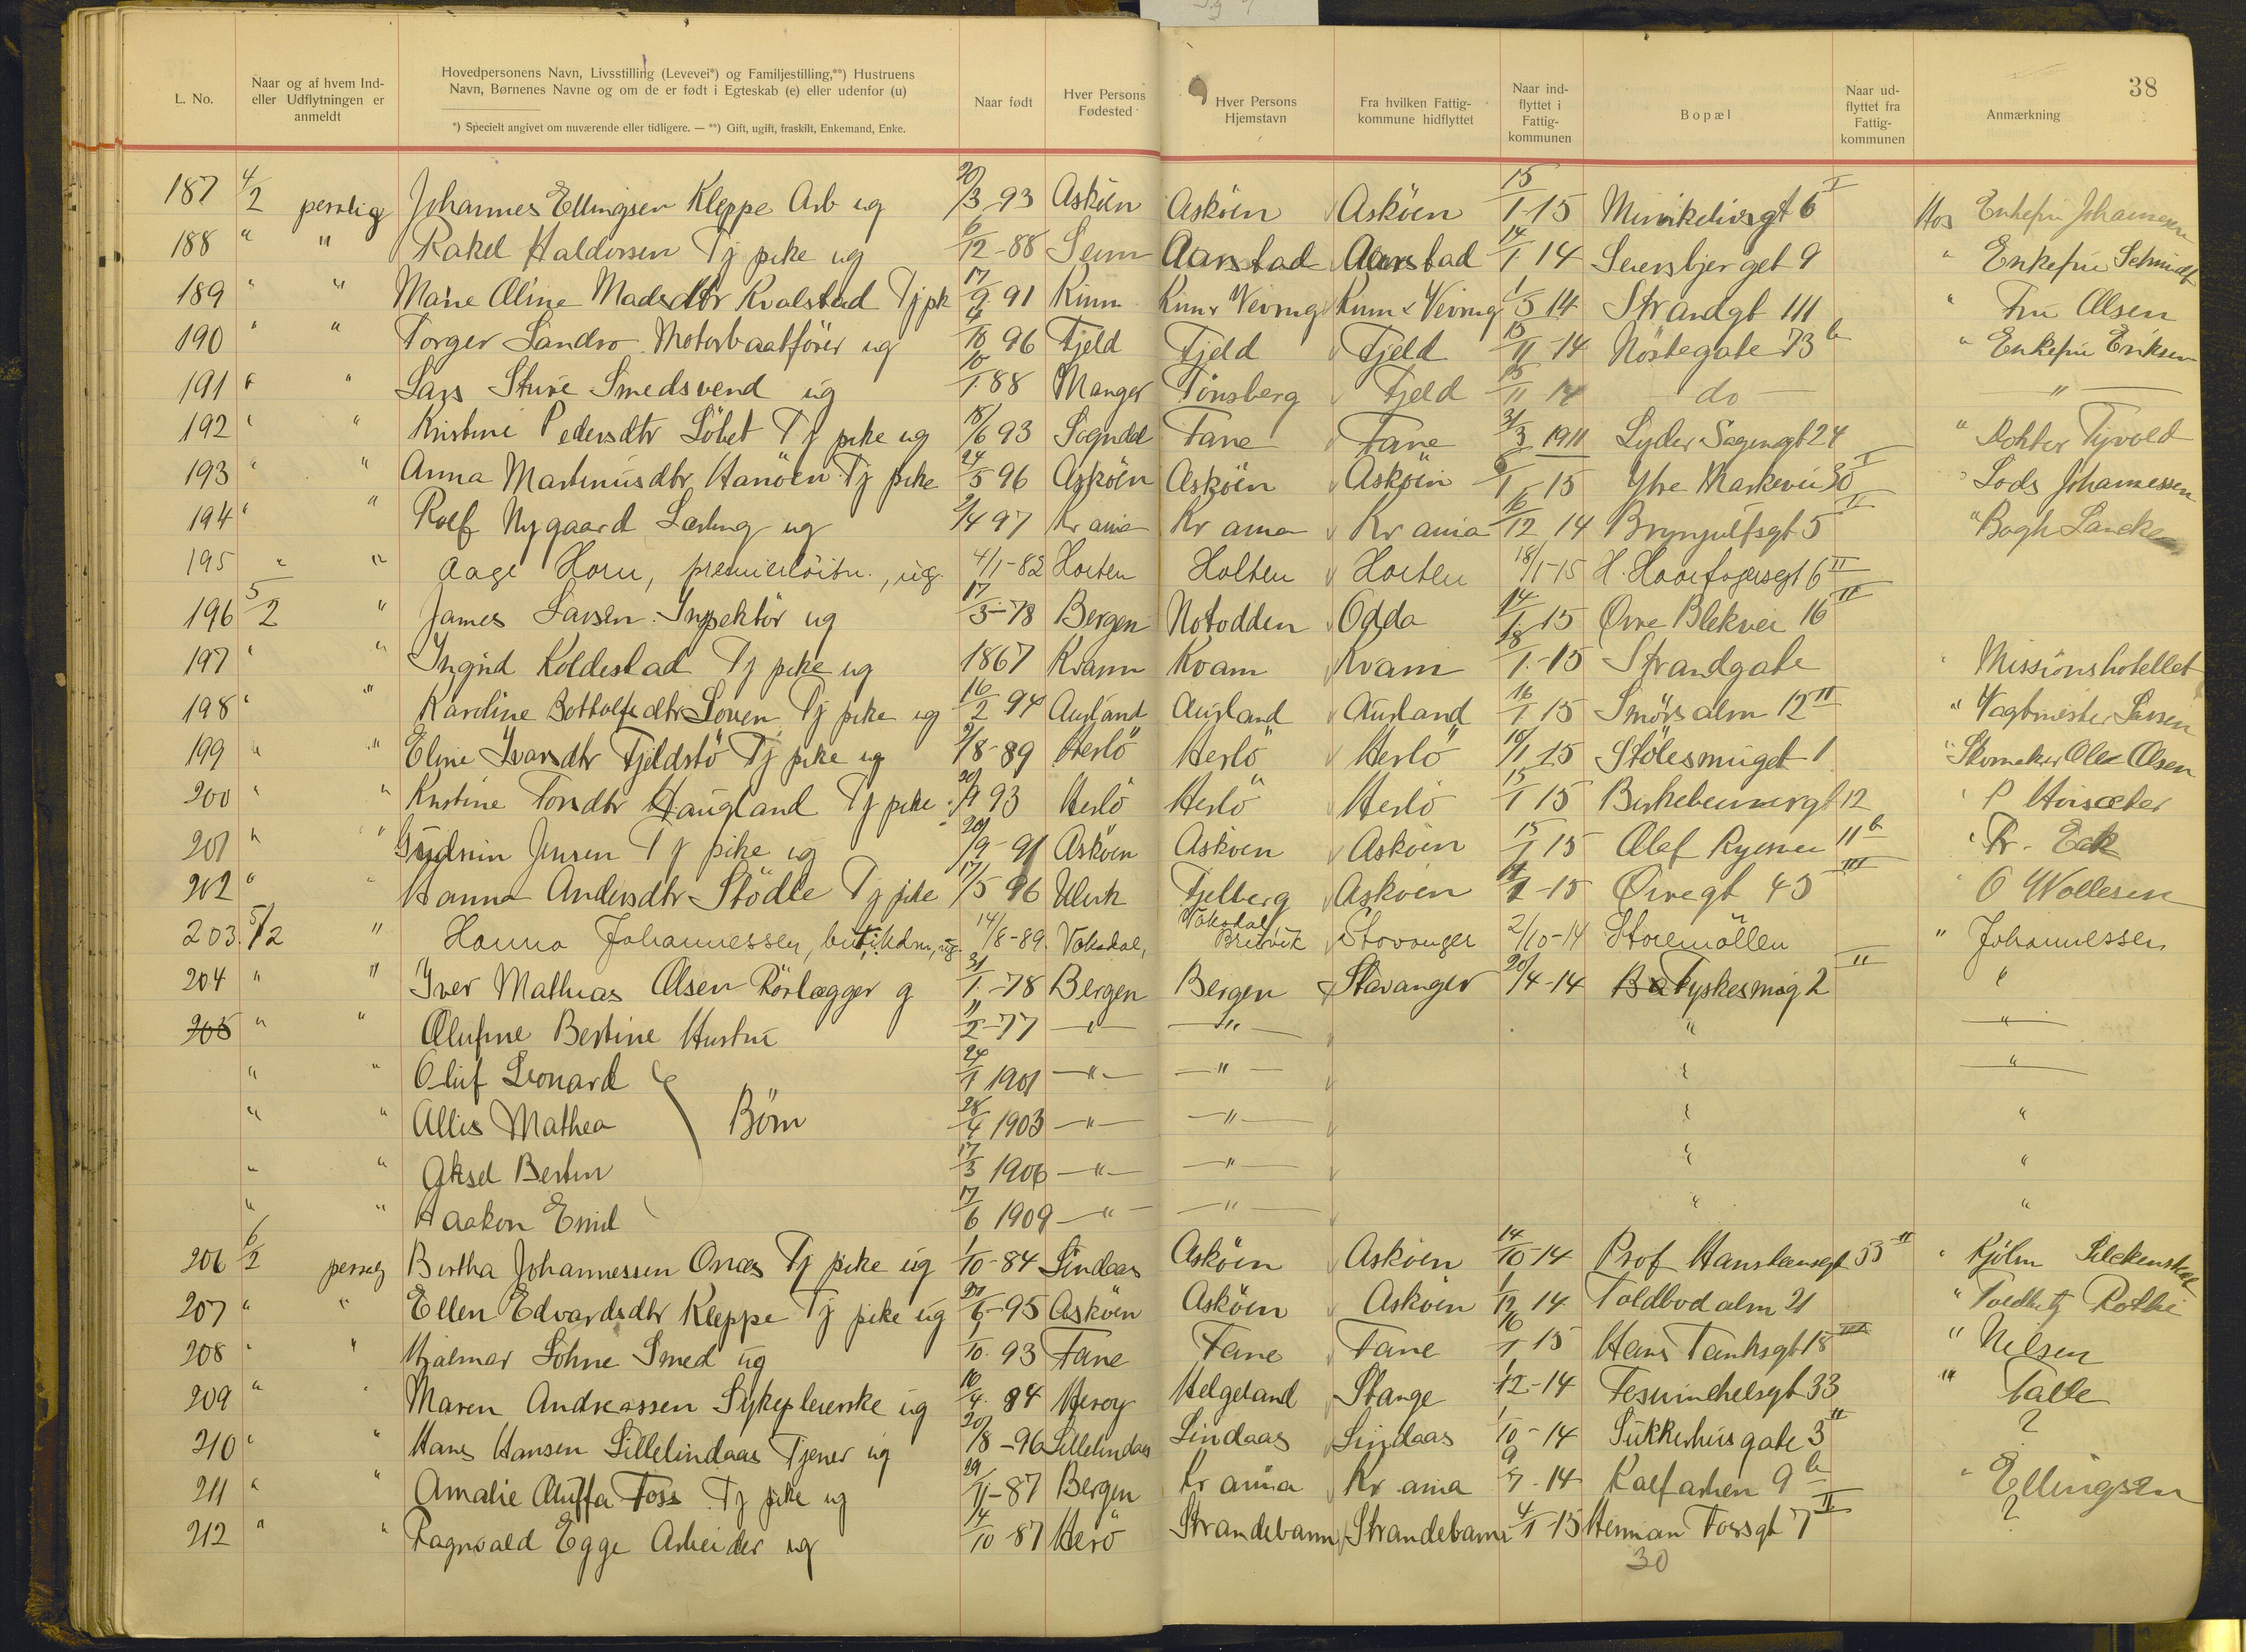 38
L. No. Naar og af hvem Ind- eller Udflytningen er anmeldt Hovedpersonens Navn, Livsstilling (Levevei*) og Familjestilling,**) Hustruens Navn, Børnenes Navne og om de er født i Egteskab (e) eller udenfor (u) *) Specielt angivet om nuværende eller tidligere. — **) Gift, ugift, fraskilt, Enkemand, Enke. Naar født Hver Persons Fødested Hver Persons Hjemstavn Fra hvilken Fattig- kommune hidflyttet Naar ind- flyttet i Fattig- kommunen Bopæl Naar ud- flyttet fra Fattig- kommunen Anmærkning
187 4/2 perslig Johannes Ellingsen Kleppe Arb ug 20/3 93 Asköen Asköen Asköen 15/1-15 Munkelivsgt 6 I Hos Enkefru Johannesen
188 " " Rakel Haldorsen Tj pike ug 6/12-88 Seim Aarstad Aarstad 14/1 14 Seiersbjerget 9 " Enkefru Schmidt
189 " " Marie Oline Madsdtr Kvalstad Tj pk 17/9 91 Kinn Kinn Vevring Kinn Vevring 1/5 14 Strandgt 111 " Fru Olsen
190 " " Torger Landro Motorbaatförer ug 4/10 96 Fjeld Fjeld Fjeld 15/11-14 Nöstegate 73 b " Enkefru Eriksen
191 " " Lars Sture Smedsvend ug 10/1 88 Manger Tönsberg Fjeld 15/11 14 do "
192 " " Kristine Pedersdtr Löbet Tj pike ug 18/6 93 Sogndal Fane Fane 31/3 1911 Lyder Sagensgt 24 " Dokter Tjvold
193 " " Anna Martinusdtr Hanöen Tj pike 24/5 96 Asköen Asköen Asköen 1-15 Ytre Markevei 30 I " Lods Johannessen
194 " " Rolf Nygaard Lærling ug 2/4 97 Kr ania Kr ania Kr ania 16/12 14 Brynjulfsgt 5 II "
195 " " Aage Horn, premierlöitn., ug. 4/1-82 Horten Holten Horten 18/1-15 H. Haarfagersgt 6 II
196 5/2 " James Larsen Inspektör ug 17/3-78 Bergen Notodden Odda 14/1 15 Övre Blekevei 16 II
197 " " Ingrid Koldestad Tj pike ug 1867 Kvam Kvam Kvam 18/1-15 Strandgate " Missionshotellet
198 " " Karoline Bottolfsdtr Loven Tj pike ug 16/2 94 Aurland Aurland Aurland 16/1 15 Smörsalm 12 II " Vagtmester Larsen
199 " " Eline Ivarsdtr Fjeldstö Tj pike ug 2/8-89 Herlö Herlö Herlö 10/1 15 Stölesmuget 1 " Skomaker Olai Olsen
200 " " Kristine Torsdtr Haugland Tj pike 20/9 93 Herlö Herlö Herlö 15/1 15 Birkebeinergt 12 " P Hoisæter
201 " " Gudrun Jensen Tj pike ug 20/9-91 Asköen Asköen Asköen 15/1 15 Olaf Ryesvei 11 b " Fr. Eck
202 " " Hanna Andersdtr Stödle Tj pike 17/5 96 Fjelberg Asköen 1-15 Övregt 45 III " O Wollesen
203. 5/2 " Hanna Johannessen, butikdm, ug. 14/8-89. Vaksdal, Vaksdal Bruvik Stavanger 2/10-14 Storemöllen " Johannessen
204 " " Iver Mathias Olsen Rörlægger g 31/1-78 Bergen Bergen Stavanger 20/4-14 Tyskesmug 2 II "
205 " " Olufine Bertine Hustru 11/2-77 " " " "
" " Oluf Leonard 24/1 1901 " " " "
" " Allis Mathea Börn 28/4 1903 " " " "
" " Aksel Bertin 17/3 1906 " " " "
" " Haakon Emil 17/6 1909 " " " "
206 6/2 perslig Bertha Johannessen Onæs Tj pike ug 1/10-84 Lindaas Asköen Asköen 14/10-14 Prof Hansteensgt 55 II "
207 " " Ellen Edvardsdtr Kleppe Tj pike ug 20/6-95 Asköen Asköen Asköen 1/12 14 Toldbodalm 21 " Rothe
208 " " Hjalmar Lohne Smed ug 1/10. 93 Fane Fane Fane 16/1 15 Hans Tanksgt 18 III " Nilsen
209 " " Maren Andreassen Sykepleierske ug 10/4. 84 Heroy Helgeland Stange 1/12-14 Fosswinckelsgt 33 " Talle
210 " " Hans Hansen Lillelindaas Tjener ug 20/8-96 Lillelindaas Lindaas Lindaas 1/10-14 Sukkerhusgate 3 II ?
211 " " Amalie Oluffa Foss Tj pike ug 29/11-87 Bergen Kr ania Kr ania 9/7-14 Kalfarlien 9 b " Ellingsen
212 " " Ragnvald Egge Arbeider ug 14/10-87 Herö Strandebarm Strandebarm 4/1-15 Herman Fossgt 7 II ?
30